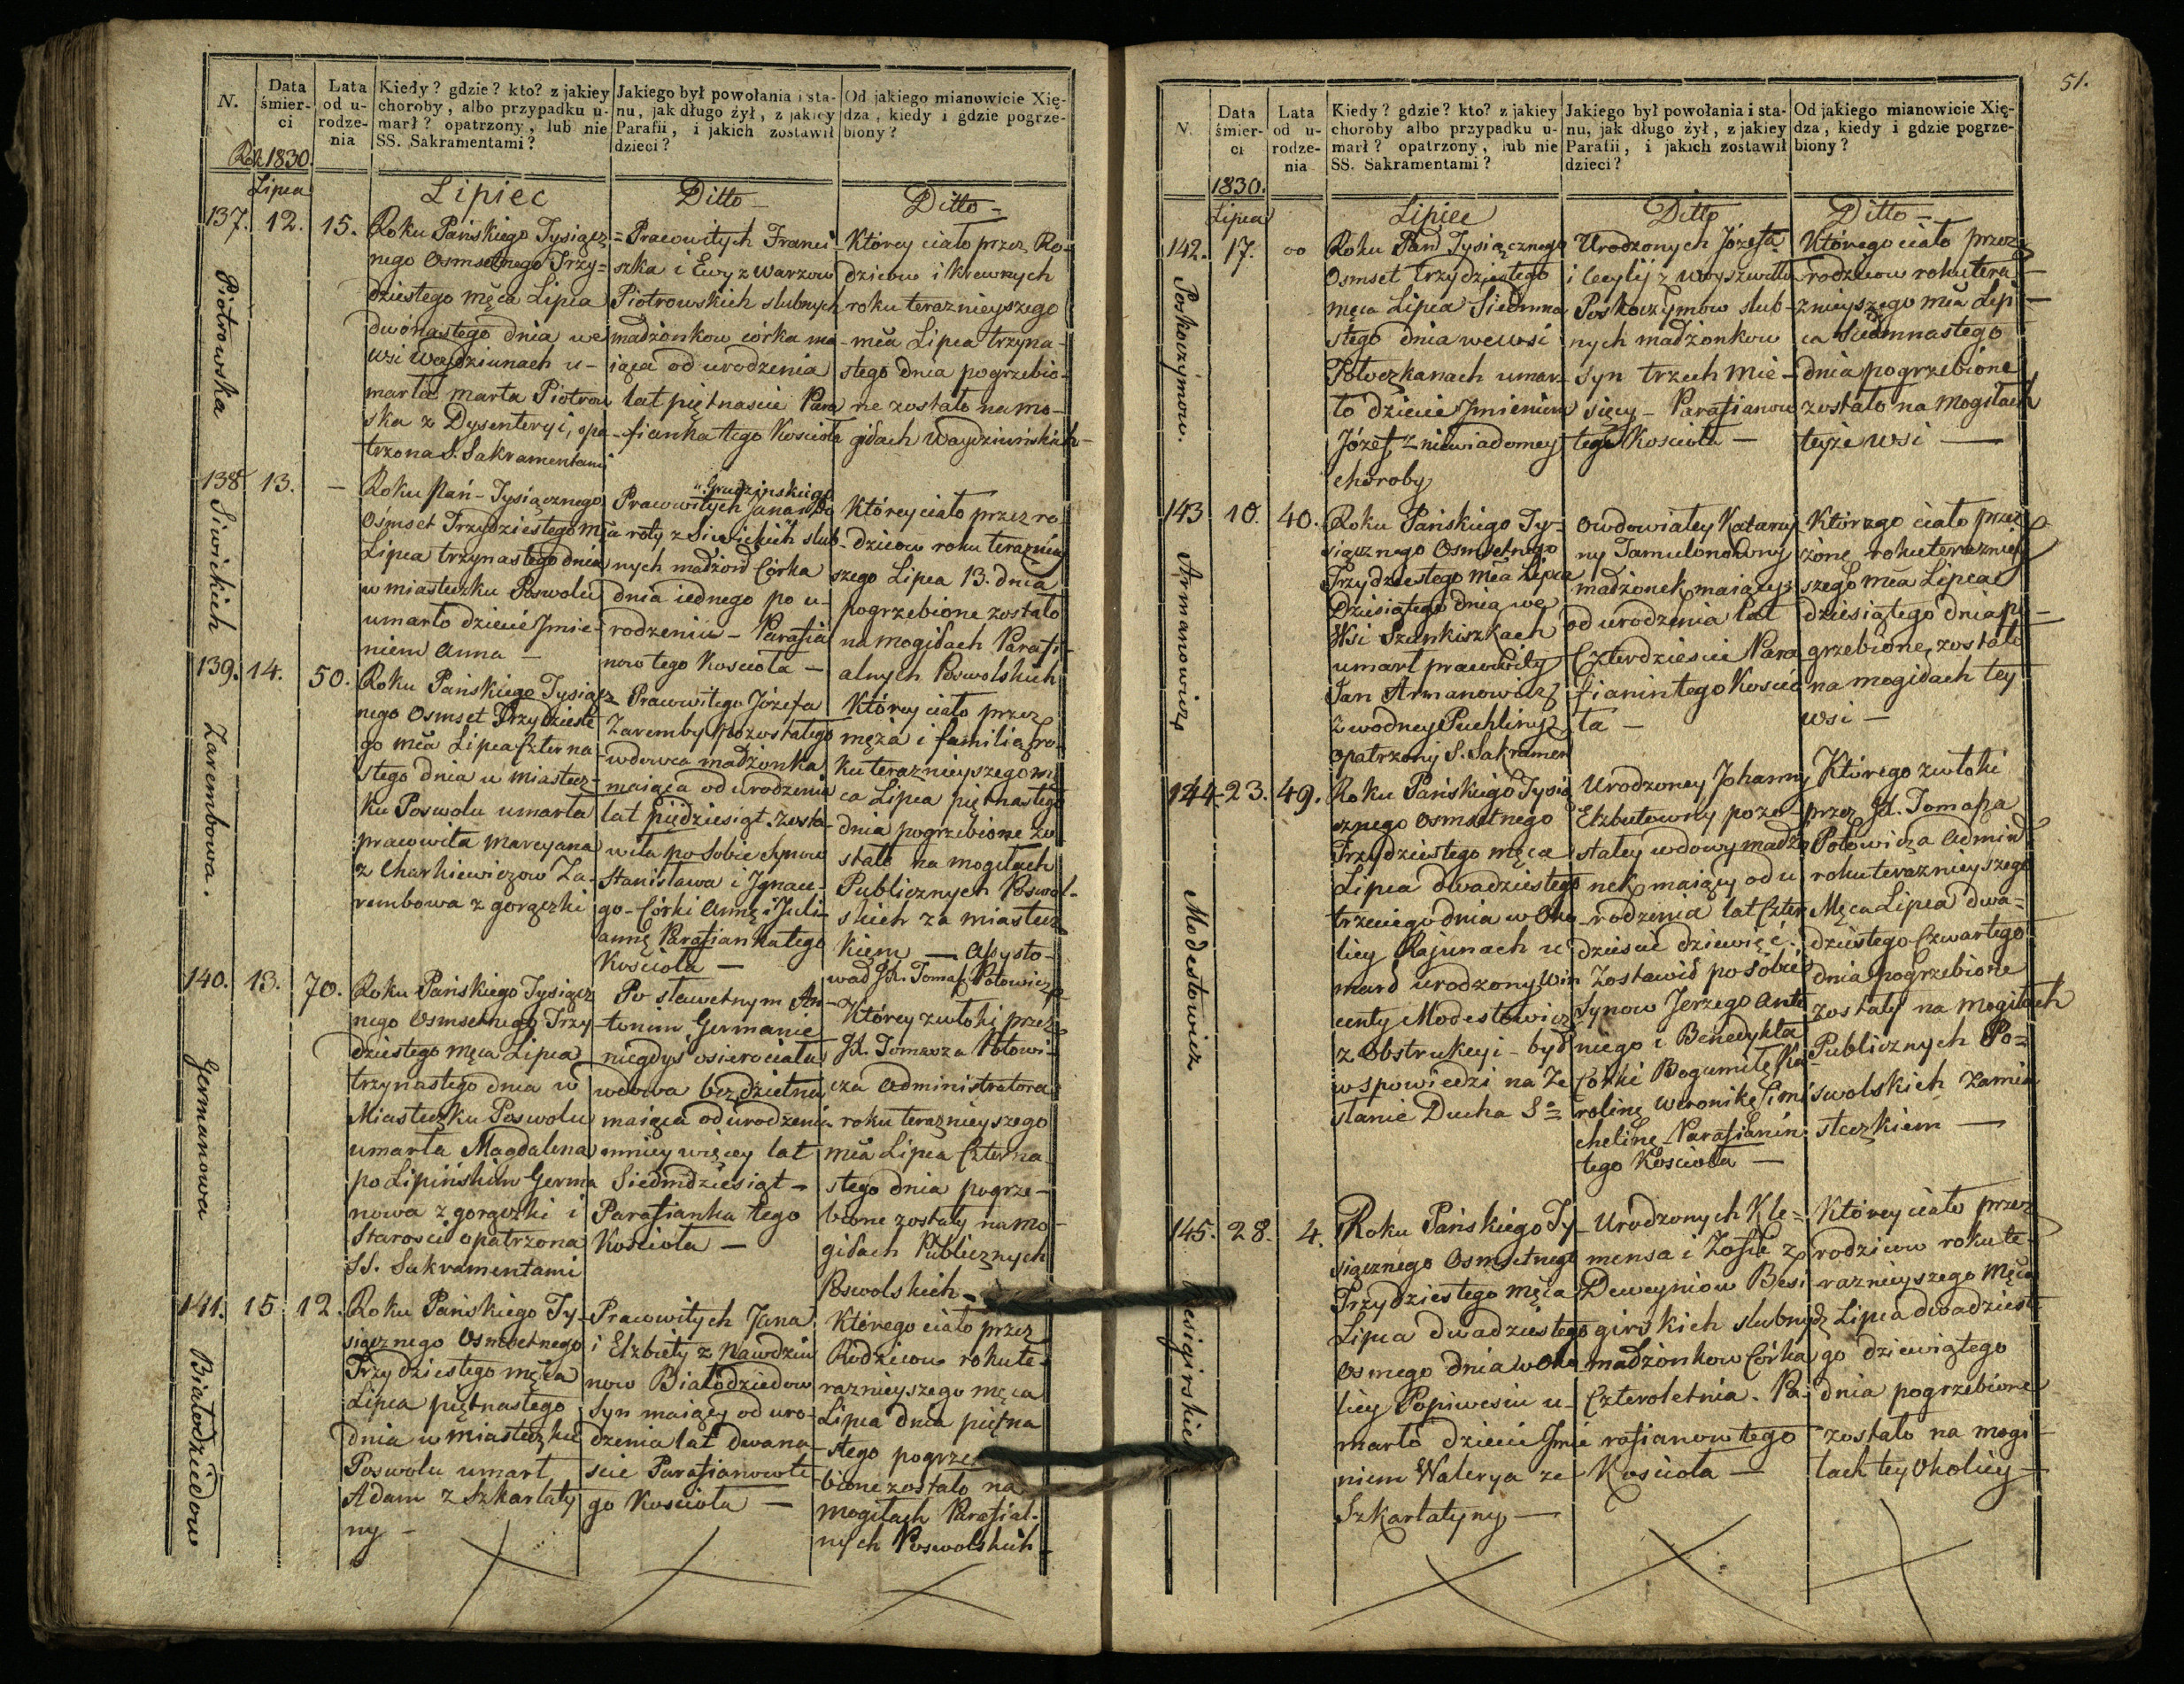 N.
Data śmier- ci
Lata od u- rodze- nia
Kiedy? gdzie? kto? z jakiey
choroby, albo przypadku u-
marł? opatrzony, lub nie
SS. Sakramentami?
Jakiego był powołania i sta-
nu, jak długo żył, z jakiey
Parafii, i jakich zostawił
dzieci?
Od jakiego mianowicie Xię-
dza, kiedy i gdzie pogrze-
biony?
Rok 1830.
Lipca
Lipiec
Ditto
Ditto
137. 12. 15.
Piotrowska
Roku Pańskiego Tysiącz
nego Osmsetnego Trzy=
dziestego męca Lipca
dwónastego dnia we
wsi Waydziunach u-
marła Marta Piotrow
ska z Dysenteryi, opa
trzona S. Sakramentami
= Pracowitych Franci
szka i Ewy z Warzow
Piotrowskich slubnych
madżonkow córka ma
iąca od urodzenia
lat piętnascie Para
fianka tego Kosciola
Którey ciało przez Ro-
dzicow i Krewnych
roku teraznieyszego
mca Lipca trzyna-
stego dnia pogrzebio-
ne zostało na mo-
gidach Waydziuńskich
138 13. —
Siwickich
Roku Pań- Tysiącznego
Osmset Trzydziestego Mca
Lipca trzynastego dnia
w miasteczku Poswolu
umarło dziecie Jmie-
niem Anna —
Grudzinskiego
Pracowitych Jana
roty z Siwickich slub-
nych madżon Córka
dnia iednego po u-
rodzeniu - Parafia
now tego Kosciola —
Którey ciało przez ro-
dzicow roku teraznie
szego Lipca 13. dnia
pogrzebione zostało
na mogidach Parafi-
alnych Poswolskich
139. 14. 50.
Zarembowa.
Roku Pańskiego Tysiącz
nego Osmset Trzydzieste
go mca Lipca Czterna-
stego dnia w miastecz-
ku Poswolu umarła
pracowita Marcyana
z Charkiewiczow Za-
rembowa z gorączki
= Pracowitego Józefa
Zaremby pozostałego
wdowca madżonka
maiąca od urodzenia
lat piędziesiąt. Zosta-
wiła po Sobie Synow
Stanisława i Jgnace-
go- Córki Annę i Juli-
annę Parafianka tego
Kosciola —
Którey ciało przez
męża i familią ro-
ku teraznieyszego m
ca Lipca piętnastego
dnia pogrzebione zo
stało na mogiłach
Publicznych Poswol-
skich za miastecz
kiem — Assysto-
wad Jx. Tomasz Potowicz
140. 13. 70.
Germanowa
Roku Pańskiego Tysiącz
nego Osmsetnego Trzy
dziestego męca Lipca
trzynastego dnia w
Miasteczku Poswolu
umarła Magdalena
po Lipińskim Germa
nowa z gorączki i
Starosci opatrzona
SS. Sakramentami
Po sławetnym An-
tonim Germanie
niegdyś osierociała
wdowa bezdzietna
maiąca od urodzenia
mniey więcey lat
Siedmdziesiąt —
Parafianka tego
Kosciola —
Którey zwłoki przez
Jx. Tomasza Potowi-
cza Administratora
roku teraznieyszego
mca Lipca Czterna
stego dnia pogrze-
bione zostały na mo-
gidach Publicznych
Poswolskich —
141. 15 12.
Białodziedow
Roku Pańskiego Ty-
siącznego Osmsetnego
Trzydziestego męca
Lipca piętnastego
dnia w miasteczku
Poswolu umarł
Adam z Szkarlaty
ny —
Pracowitych Jana
i Elzbiety z Nawdziu
now Białodziedow
Syn maiący od uro-
dzenia lat dwana-
scie Parafianow te-
go Kosciola —
Którego ciało przez
Rodzicow roku te-
raznieyszego męca
Lipca dnia piętna
stego pogrze
bione zostało na
mogiłach Parafial-
nych Poswolskich
51.
N.
Data śmier- ci
Lata od u- rodze- nia
Kiedy? gdzie? kto? z jakiey
choroby albo przypadku u-
marł? opatrzony, lub nie
SS. Sakramentami?
Jakiego był powołania i sta-
nu, jak długo żył, z jakiey
Parafii, i jakich zostawił
dzieci?
Od jakiego mianowicie Xię-
dza, kiedy i gdzie pogrze-
biony?
1830.
Lipca
Lipiec
Ditto
Ditto —
142. 17. oo
Poskoczymow.
Roku Pań Tysiącznego
Osmset trzydziestego
męca Lipca Siedmna
stego dnia we wsi
Tołoczkanach umar-
ło dziecie Jmieniem
Józef z niewiadomey
choroby
Urodzonych Józefa
i Cecylij z
Poskoczymow slub-
nych madżonkow
syn trzech mie-
sięcy - Parafianow
tego Kosciola —
Którego ciało przez
rodzicow roku tera
znieyszego mca Lip-
ca Siedmnastego
dnia pogrzebione
zostało na mogiłach
teyże wsi —
143 10. 40.
Armanowicz
Roku Pańskiego Ty-
siącznego Osmsetnego
Trzydziestego mca Lipca
Dziesiątego dnia we
Wsi Szunkiszkach
umarł pracowity
Jan Armanowicz
z wodney Puchliny
opatrzony S. Sakramen
Owdowiałey Katarzy
ny Tamulonowny
madżonek maiący
od urodzenia lat
Czterdziescie Para
fianin tego Koscio
ła —
Którego ciało przez
żonę roku terazniey
szego mca Lipca
dziesiątego dnia po-
grzebione, zostało
na mogidach tey
wsi —
144 23. 49.
Modestowicz
Roku Pańskiego Tysią
cznego Osmsetnego
Trzydziestego męca
Lipca dwadziestego
trzeciego dnia w Oko
licy Rajunach u
mard urodzony Win
centy Modestowicz
z Obstrukcyi - byd
w spowiedzi na Ze
slanie Ducha Sº
Urodzoney Johanny
Elzbutowny pozo-
stałey wdowy madżo
nek maiący od u
rodzenia lat Czter
dziesci dziewięć.
Zostawid po sobie
Synow Jerzego Anto
niego i Benedykta
Córki Bogumiłę Ka
rolinę Weronikę i mi
chelinę - Parafianin
tego Kosciola —
Którego zwłoki
przez Jx. Tomasza
Potowicza Admini
roku teraznieyszego
Męca Lipca dwa=
dziestego Czwartego
dnia pogrzebione
zostały na mogiłach
Publicznych Po=
swolskich za mia
steczkiem —
145. 28. 4.
Roku Pańskiego Ty
siącznego Osmsetnego
Trzydziestego męca
Lipca dwadziestego
Osmego dnia w Oko
licy Popiwesiu u-
marło dziecie Jmie
niem Walerya ze
Szkarlatyny —
Urodzonych Kle=
mensa i Zofii z
Deweyniow Besi
girskich slubnych
madżonkow Córka
Czteroletnia. Pa
rafianow tego
Kosciola —
Którey ciało przez
rodzicow roku te-
raznieyszego Męca
Lipca dwadziest
go dziewiątego
dnia pogrzebione
zostało na mogi
łach tey Okolicy